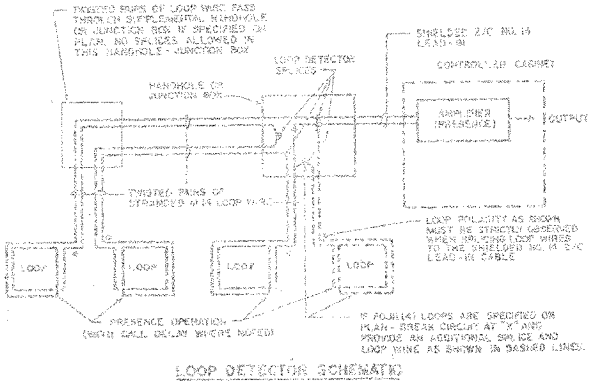 TWISTED PAIRS OF LOOP WIRE PASS
THROUGH SUPPLEMENTAL HANDHOLE
OR JUNCTION BOX IF SPECIFIED ON
PLAN. NO SPLICES ALLOWED IN
THIS HANDHOLE - JUNCTION BOX
LOOP DETECTOR
SPLICES
SHIELDED 2/C NO. 14
LEAD-IN
CONTROLLER CABINET
HANDHOLE OR
JUNCTION BOX
AMPLIFIER
(PRESENCE)
OUTPUT
TWISTED PAIRS OF
STRANDED #14 LOOP WIRE
LOOP POLARITY AS SHOWN
MUST BE STRICTLY OBSERVED
WHEN SPLICING LOOP WIRES
TO THE SHIELDED NO. 14 2/C
LEAD-IN CABLE
LOOP
LOOP
LOOP
LOOP
PRESENCE OPERATION
(WITH CALL DELAY WHERE NOTED)
IF FOUR (4) LOOPS ARE SPECIFIED ON
PLAN - BREAK CIRCUIT AT "X" AND
PROVIDE AN ADDITIONAL SPLICE AND
LOOP WIRE AS SHOWN IN DASHED LINES.
LOOP DETECTOR SCHEMATIC